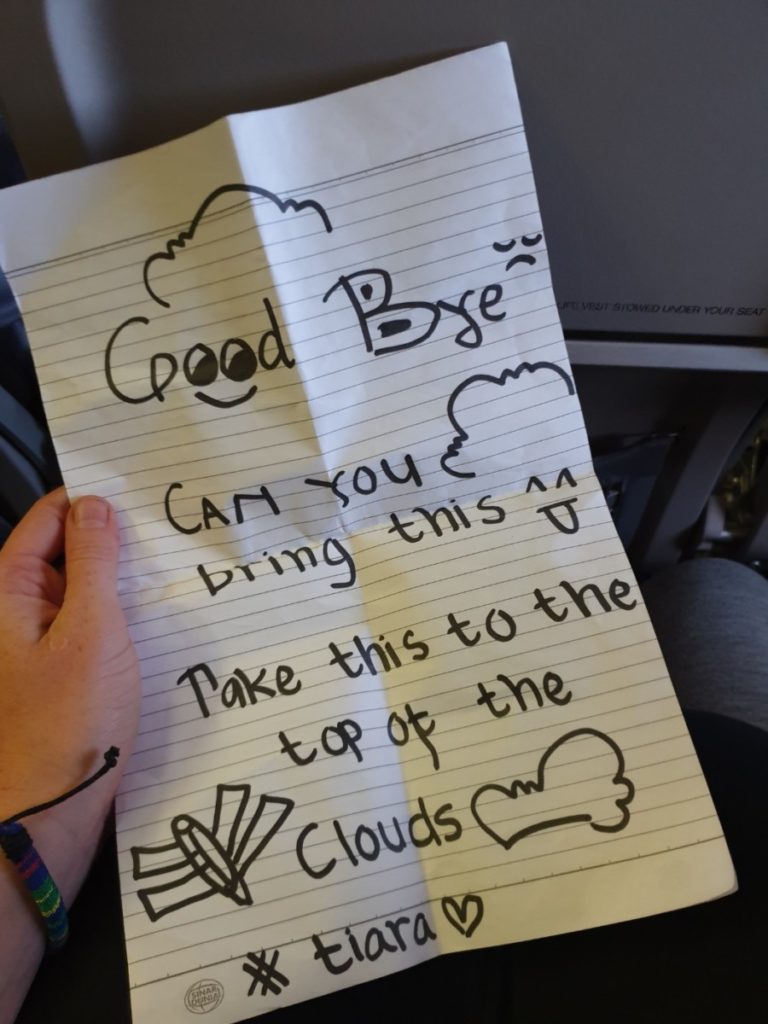 Good Bye
LIFE VEST STOWED UNDER YOUR SEAT
CAN YOU
bring this
Take this to the
top of the
Clouds
tiara
SINAR
DUNIA